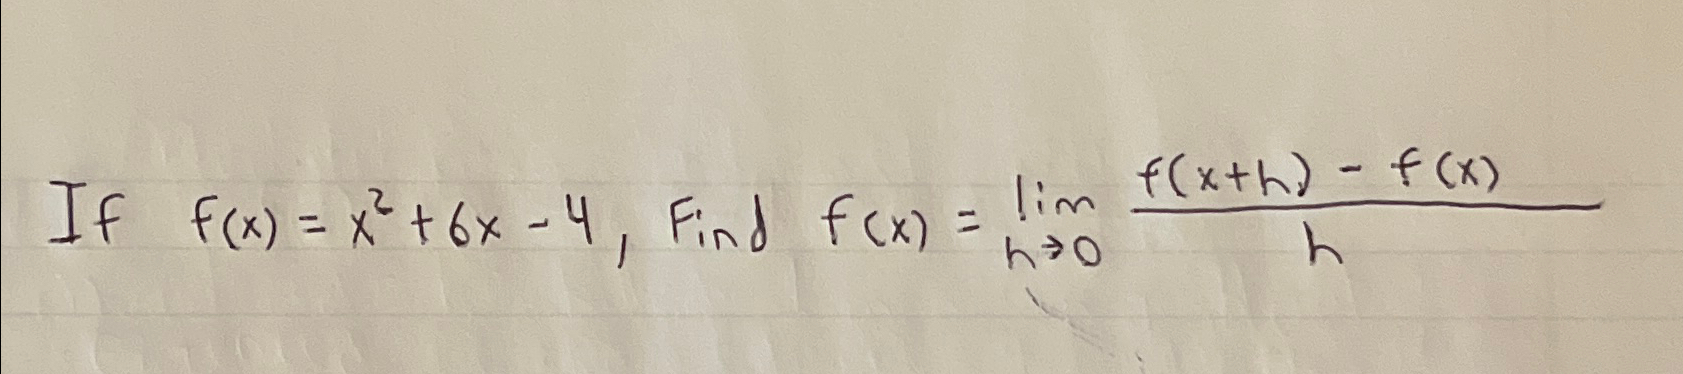 If f(x) = x² + 6x - 4, Find f(x) = lim h→0 f(x+h) - f(x) / h